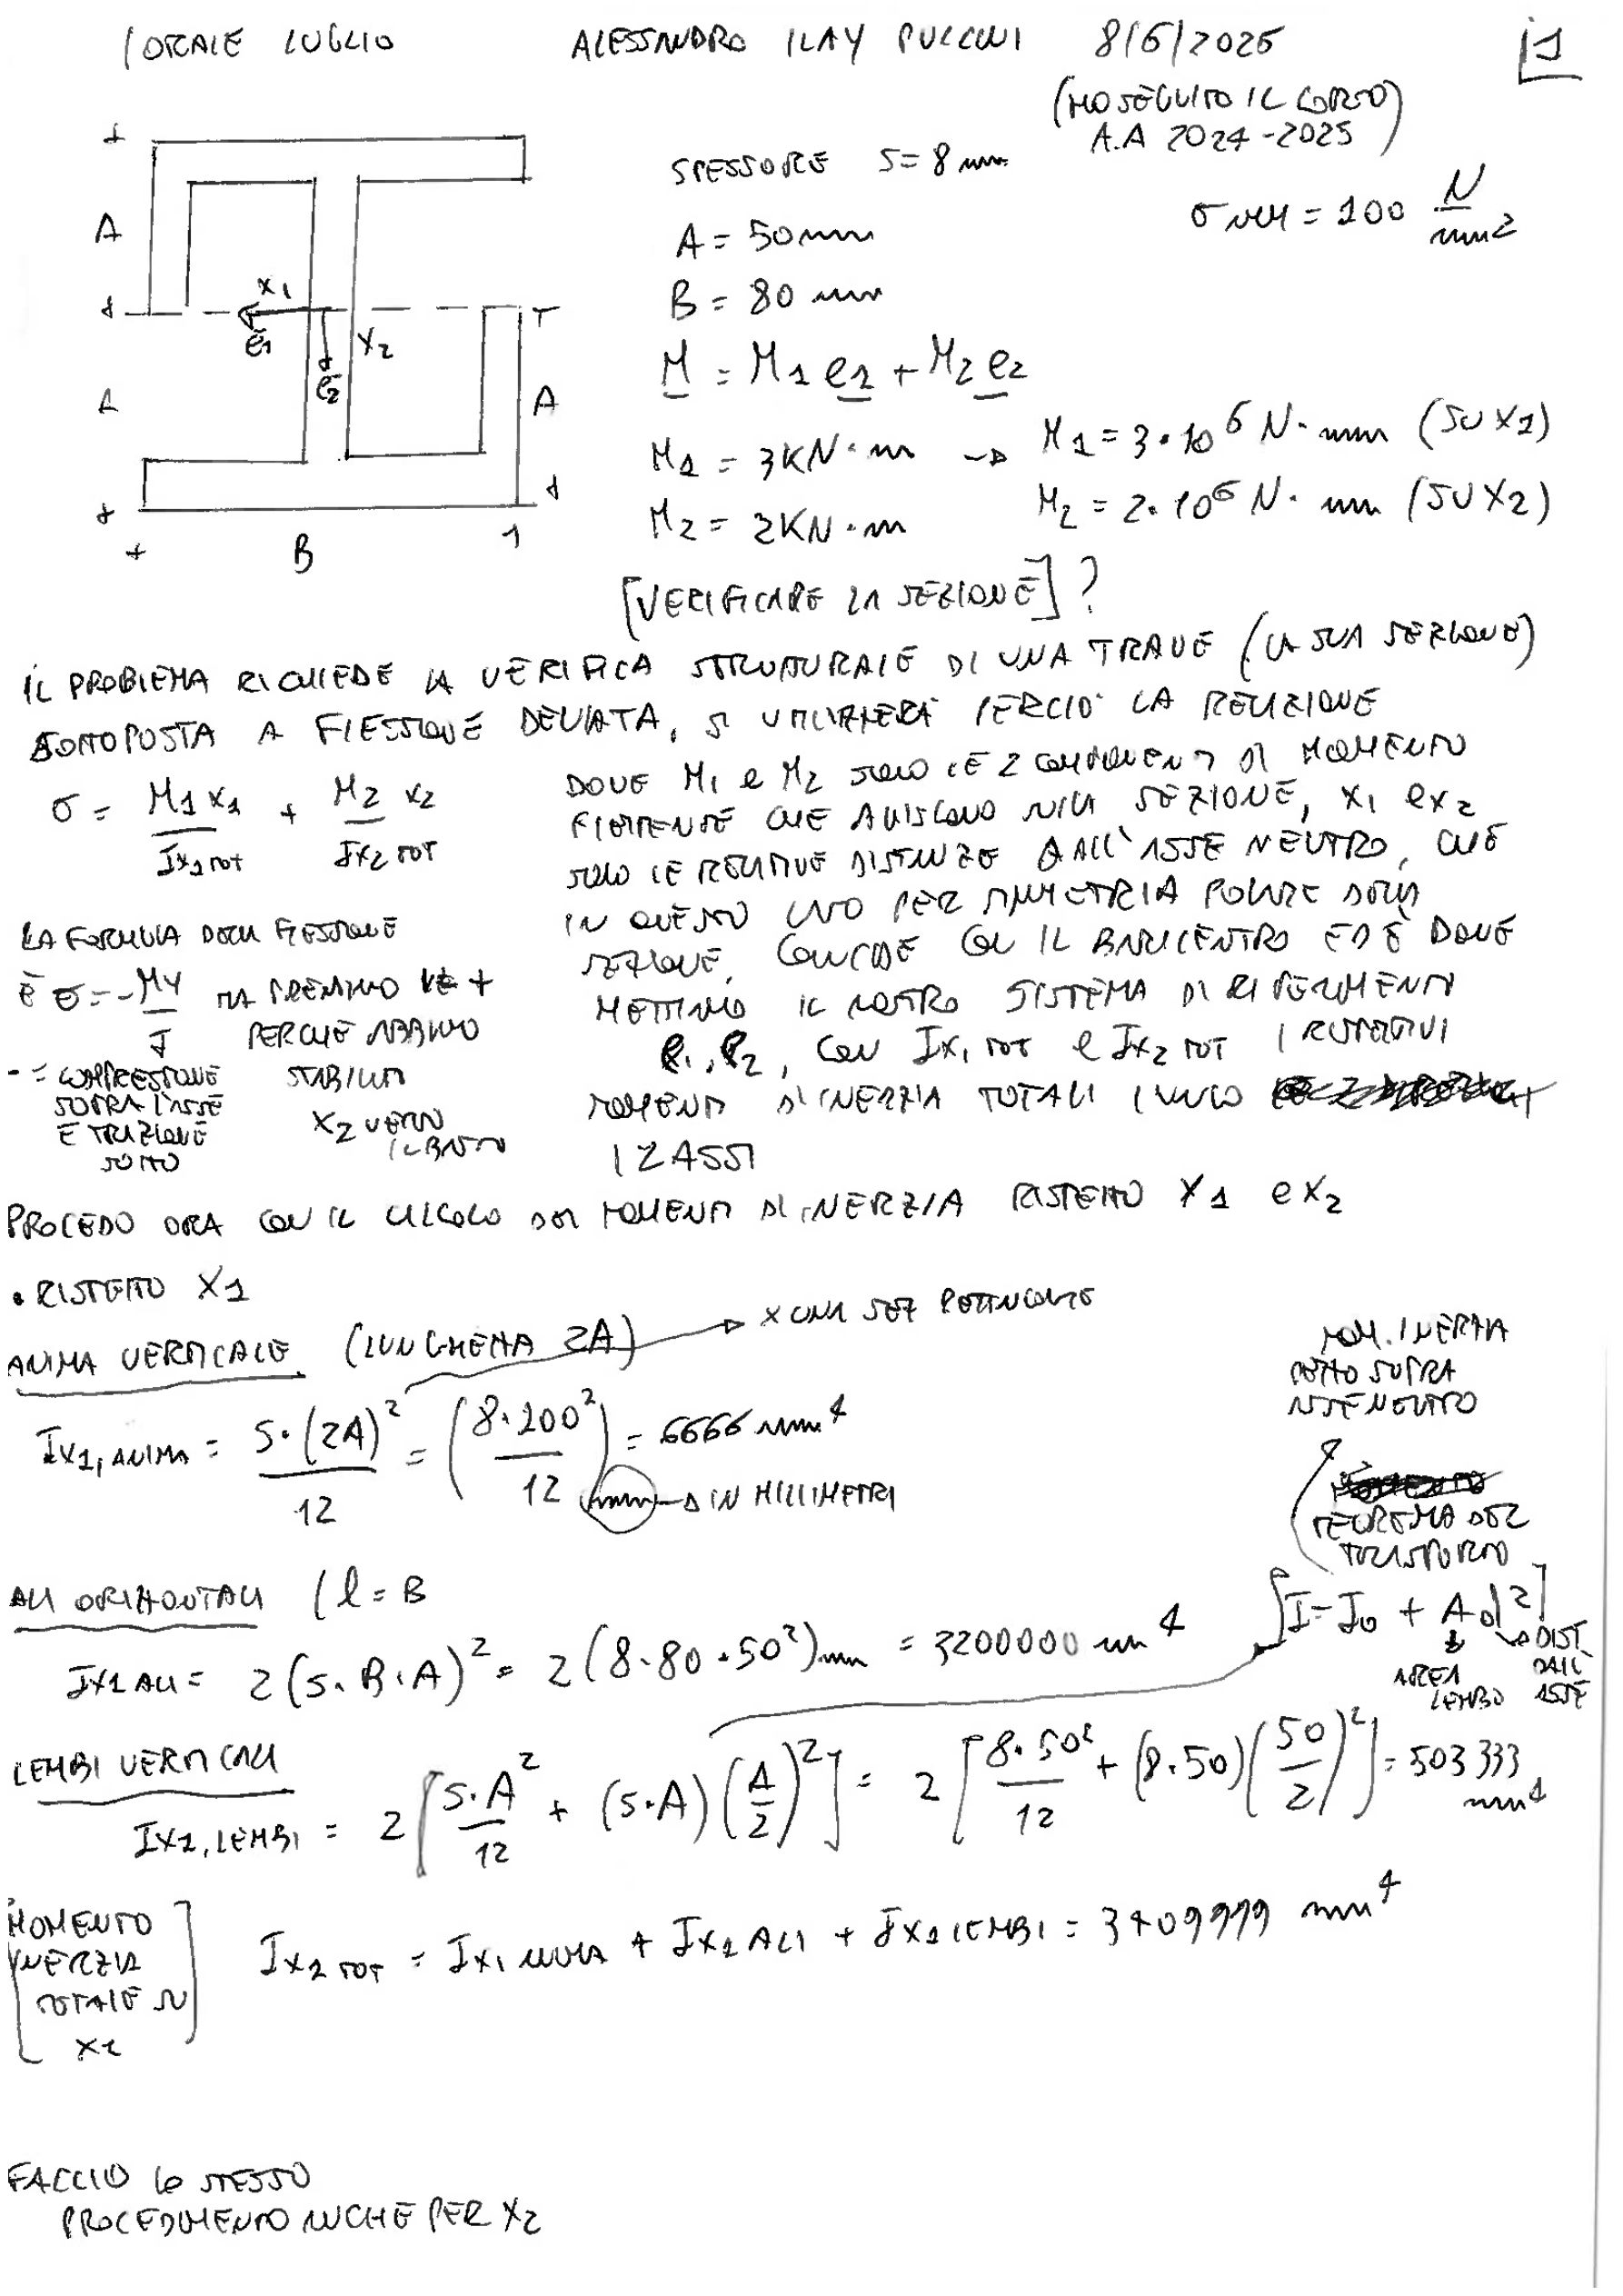 ALESSANDRO ILAY 8/6/2025 1
(HO SEGUITO IL CORSO)
A.A 2024-2025
SPESSORE S = 8 mm
A = 50 mm
B = 80 mm
M = M1 e1 + M2 e2
M1 = 3KN·m → M1 = 3·10^6 N·mm (SU X1)
M2 = 2KN·m M2 = 2·10^6 N·mm (SU X2)
A
A
A
B
X1
e1
X2
e2
[VERIFICARE LA SEZIONE]?
IL PROBLEMA RICHIEDE LA VERIFICA STRUTTURALE DI UNA TRAVE (LA SUA SEZIONE)
SOTTOPOSTA A FLESSIONE DEVIATA, SI UTILIZZERÀ PERCIÒ LA RELAZIONE
σ = M1 X1 / IX1 TOT + M2 X2 / IX2 TOT
DOVE M1 e M2 SONO LE 2 COMPONENTI DI MOMENTO
FLETTENTE CHE AGISCONO SULLA SEZIONE, X1 e X2
SONO LE RELATIVE DISTANZE DALL'ASSE NEUTRO, CHE
IN QUESTO CASO PER SIMMETRIA POLARE DELLA
SEZIONE, COINCIDE CON IL BARICENTRO ED È DOVE
METTIAMO IL NOSTRO SISTEMA DI RIFERIMENTO
e1, e2, CON IX1 TOT e IX2 TOT I RISPETTIVI
MOMENTI D'INERZIA TOTALI LUNGO
I 2 ASSI
LA FORMULA DELLA FLESSIONE
È σ = -My / I MA PRENDIAMO +
PERCHÈ ABBIAMO
STABILITO
X2 VERSO
IL BASSO
- = COMPRESSIONE
SOPRA L'ASSE
E TRAZIONE
SOTTO
PROCEDO ORA CON IL CALCOLO DEI MOMENTI DI INERZIA RISPETTO X1 e X2
• RISPETTO X1
ANIMA VERTICALE (LUNGHEZZA 2A) → X UNA SEZ RETTANGOLARE
IX1, ANIMA = S·(2A)^2 / 12 = (8·100^2 / 12) mm = 6666 mm^4
→ IN MILLIMETRI
MOM. INERZIA
ASSE NEUTRO
TEOREMA DEL
TRASPORTO
[I = I0 + A d^2]
AREA
LEMBO
DIST.
DALL'
ASSE
ALI ORIZZONTALI (l = B
IX1 ALI = 2(S·B·A)^2 = 2(8·80·50^2) mm = 3200000 mm^4
LEMBI VERTICALI
IX1, LEMBI = 2[S·A^2 / 12 + (S·A)(A/2)^2] = 2[8·50^2 / 12 + (8·50)(50/2)^2] = 503333 mm^4
[MOMENTO
INERZIA
TOTALE SU
X1]
IX1 TOT = IX1 ANIMA + IX1 ALI + IX1 LEMBI = 3709999 mm^4
FACCIO lo STESSO
PROCEDIMENTO ANCHE PER X2